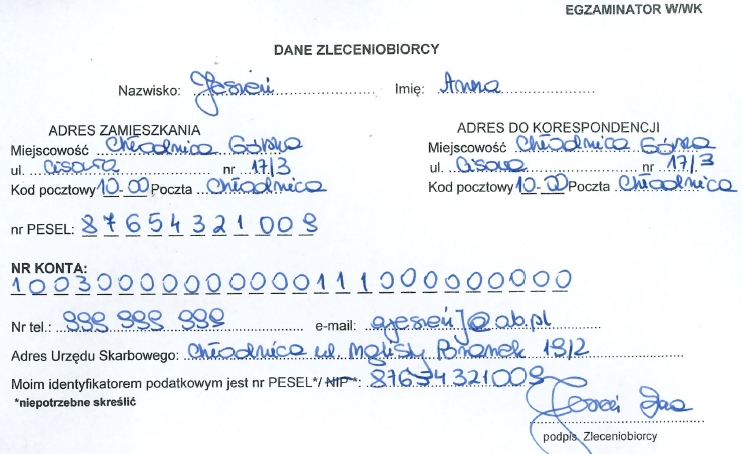 EGZAMINATOR W/WK
DANE ZLECENIOBIORCY
Nazwisko: Jesień Imię: Anna
ADRES ZAMIESZKANIA
Miejscowość Chłodnica Górska
ul. Cisowa nr 17/3
Kod pocztowy 10-00 Poczta Chłodnica
ADRES DO KORESPONDENCJI
Miejscowość Chłodnica Górska
ul. Cisowa nr 17/3
Kod pocztowy 10-00 Poczta Chłodnica
nr PESEL: 87654321009
NR KONTA:
10030000000000111000000000
Nr tel.: 999 999 999 e-mail: ajesień@ab.pl
Adres Urzędu Skarbowego: Chłodnica ul. Mglisty 19/2
Moim identyfikatorem podatkowym jest nr PESEL*/ NIP*: 87654321009
*niepotrzebne skreślić
Jesień
podpis Zleceniobiorcy